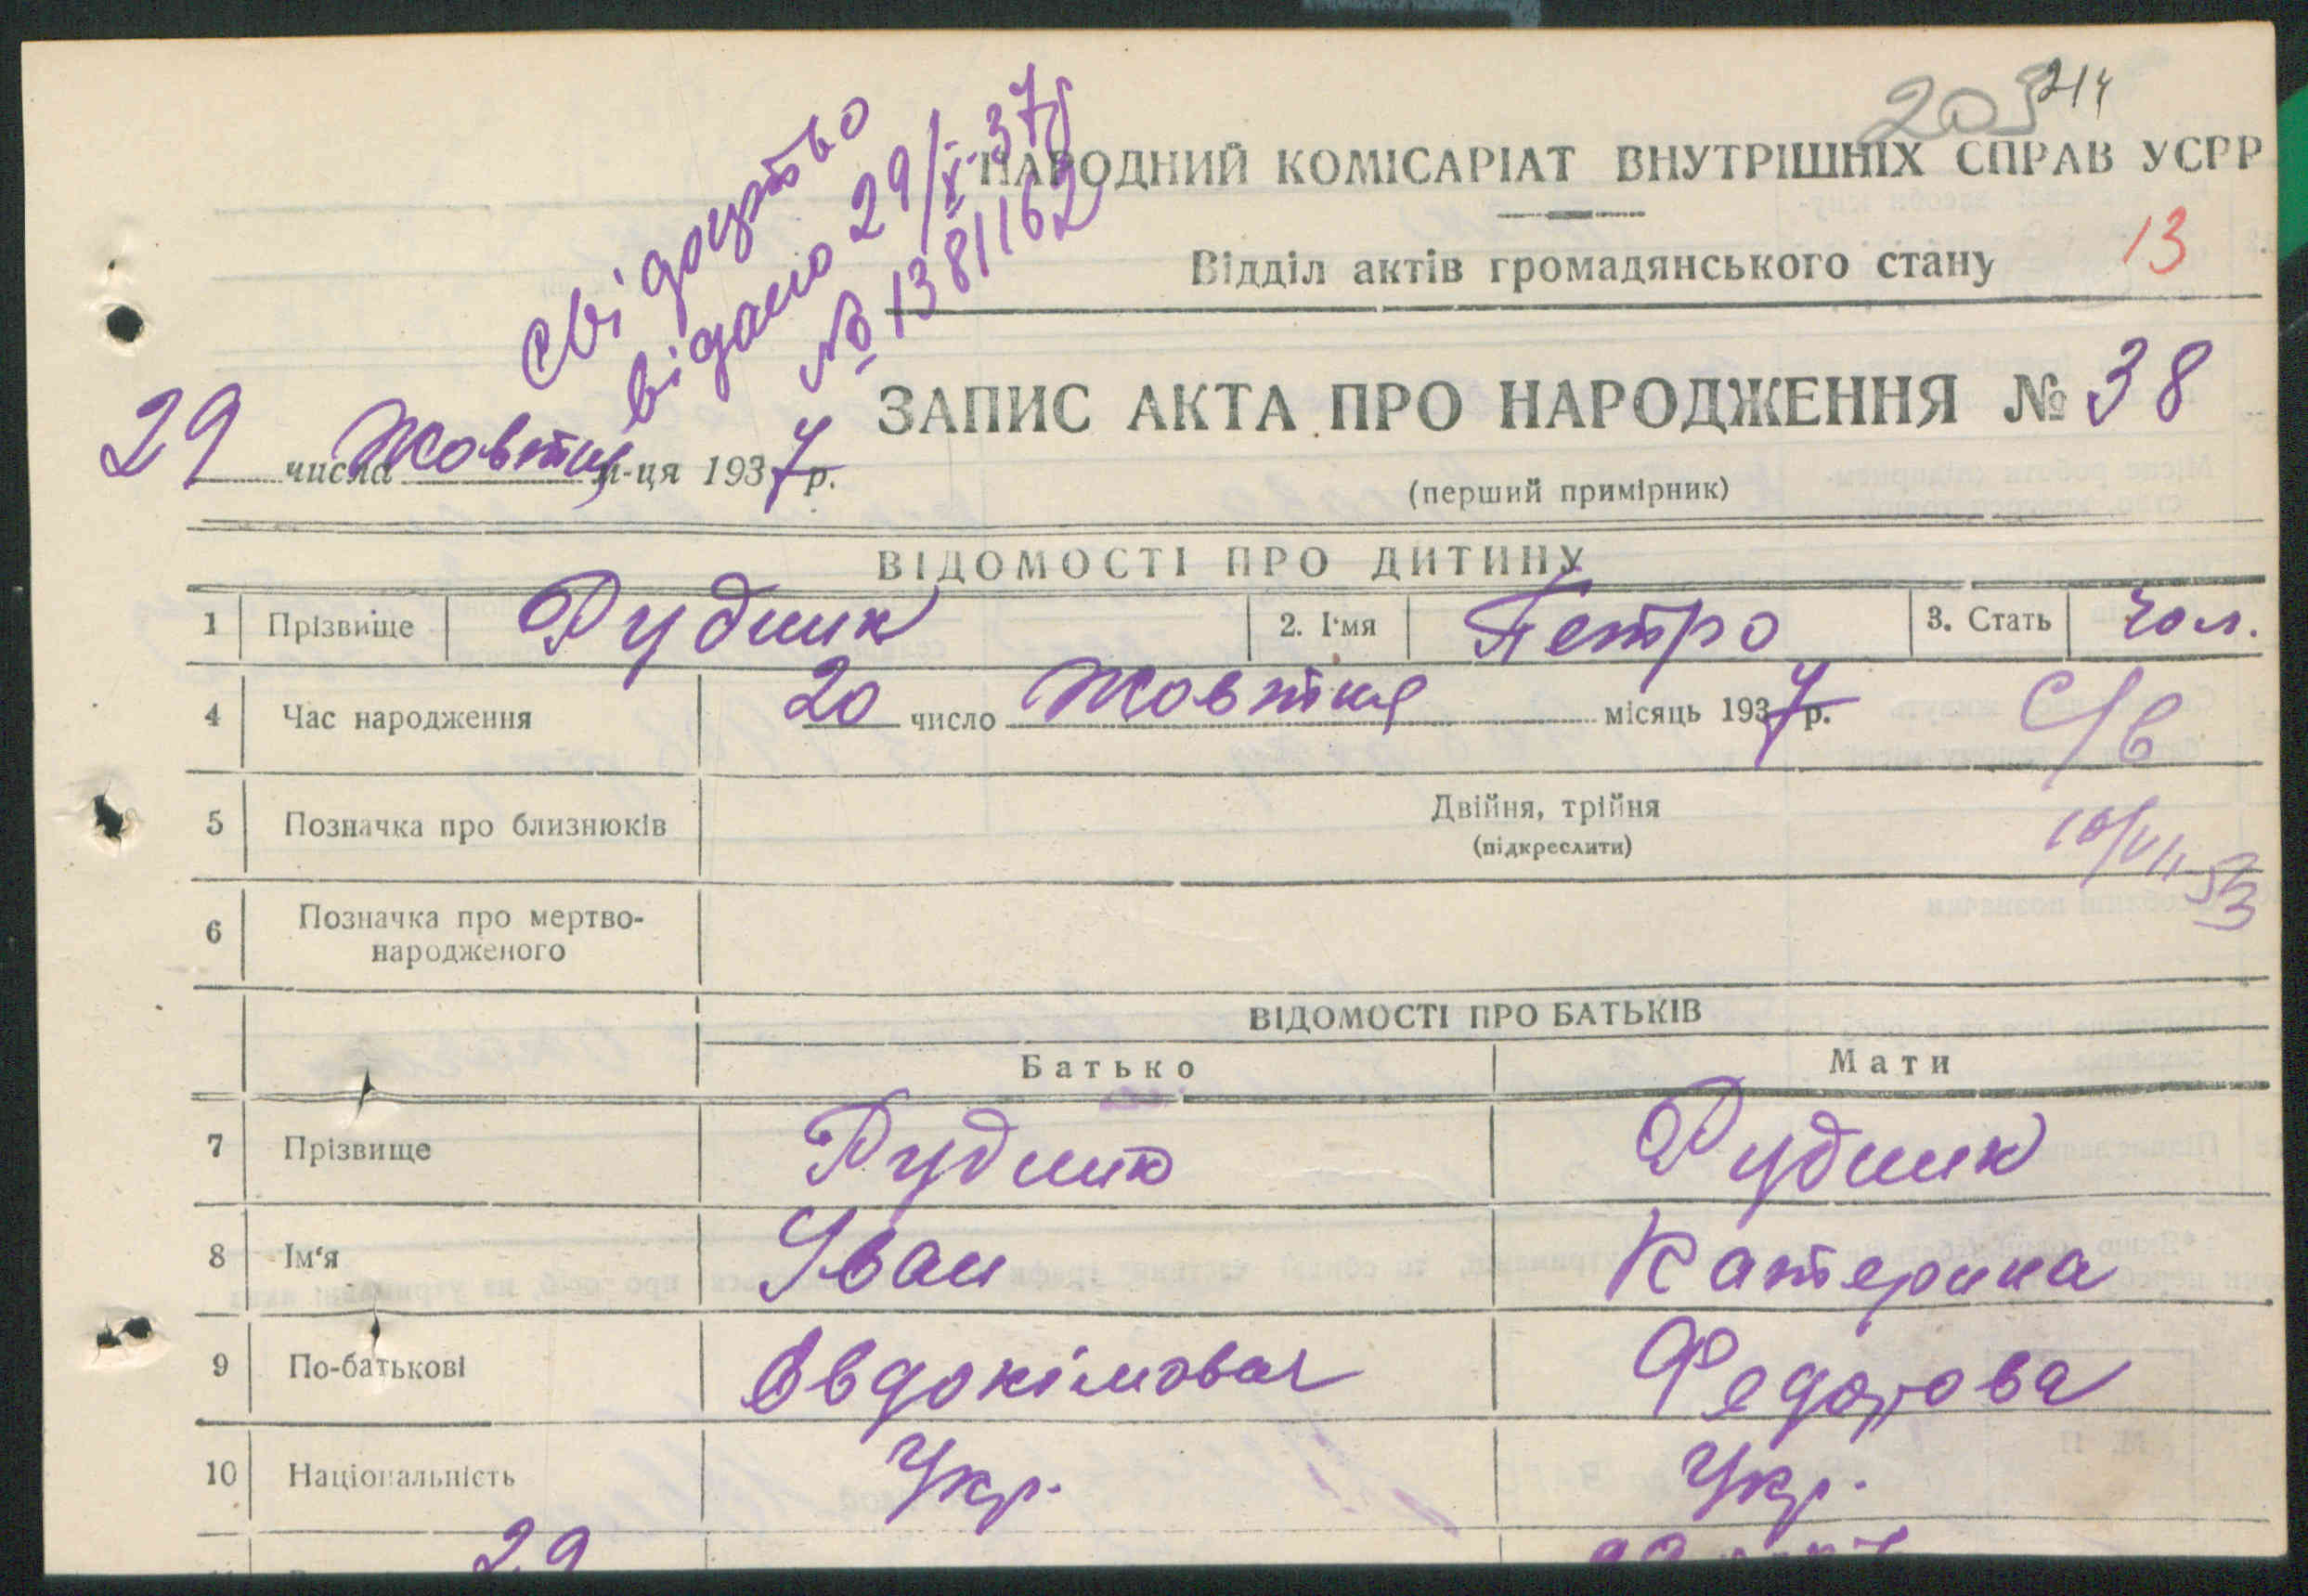 205 214
свідоцтво
відано 29/X-37р
№ 1381162
НАРОДНИЙ КОМІСАРІАТ ВНУТРІШНІХ СПРАВ УСРР
Відділ актів громадянського стану 13
ЗАПИС АКТА ПРО НАРОДЖЕННЯ № 38
29 числа Жовтня м-ця 1937 р.
(перший примірник)
ВІДОМОСТІ ПРО ДИТИНУ
1 Прізвище Рудник 2. І'мя Петро 3. Стать Чол.
4 Час народження 20 число Жовтня місяць 1937 р. С/в
5 Позначка про близнюків Двійня, трійня
(підкреслити)
10/VII 53
6 Позначка про мертво-
народженого
ВІДОМОСТІ ПРО БАТЬКІВ
Батько Мати
7 Прізвище Рудник Рудник
8 Ім'я Іван Катерина
9 По-батькові Овдокімович Федорова
10 Національність Укр. Укр.
29